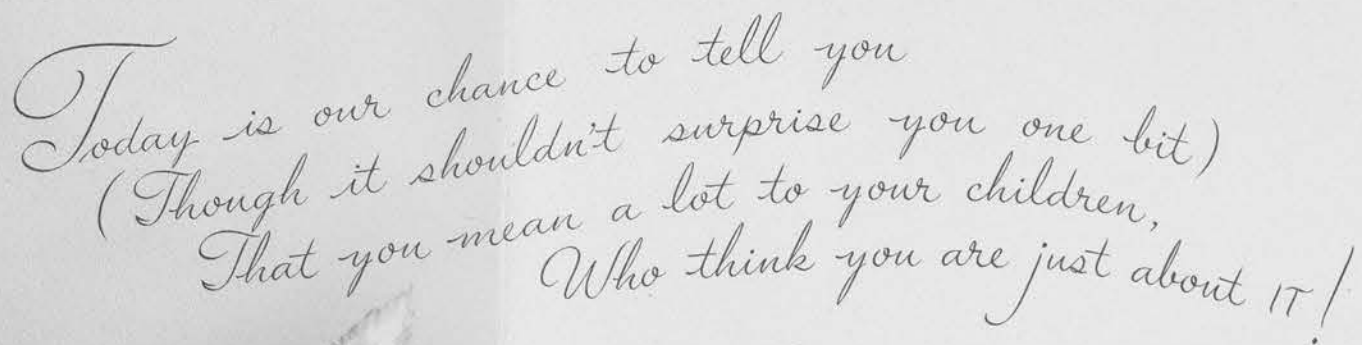 Today is our chance to tell you
(Though it shouldn't surprise you one bit)
That you mean a lot to your children,
Who think you are just about IT!